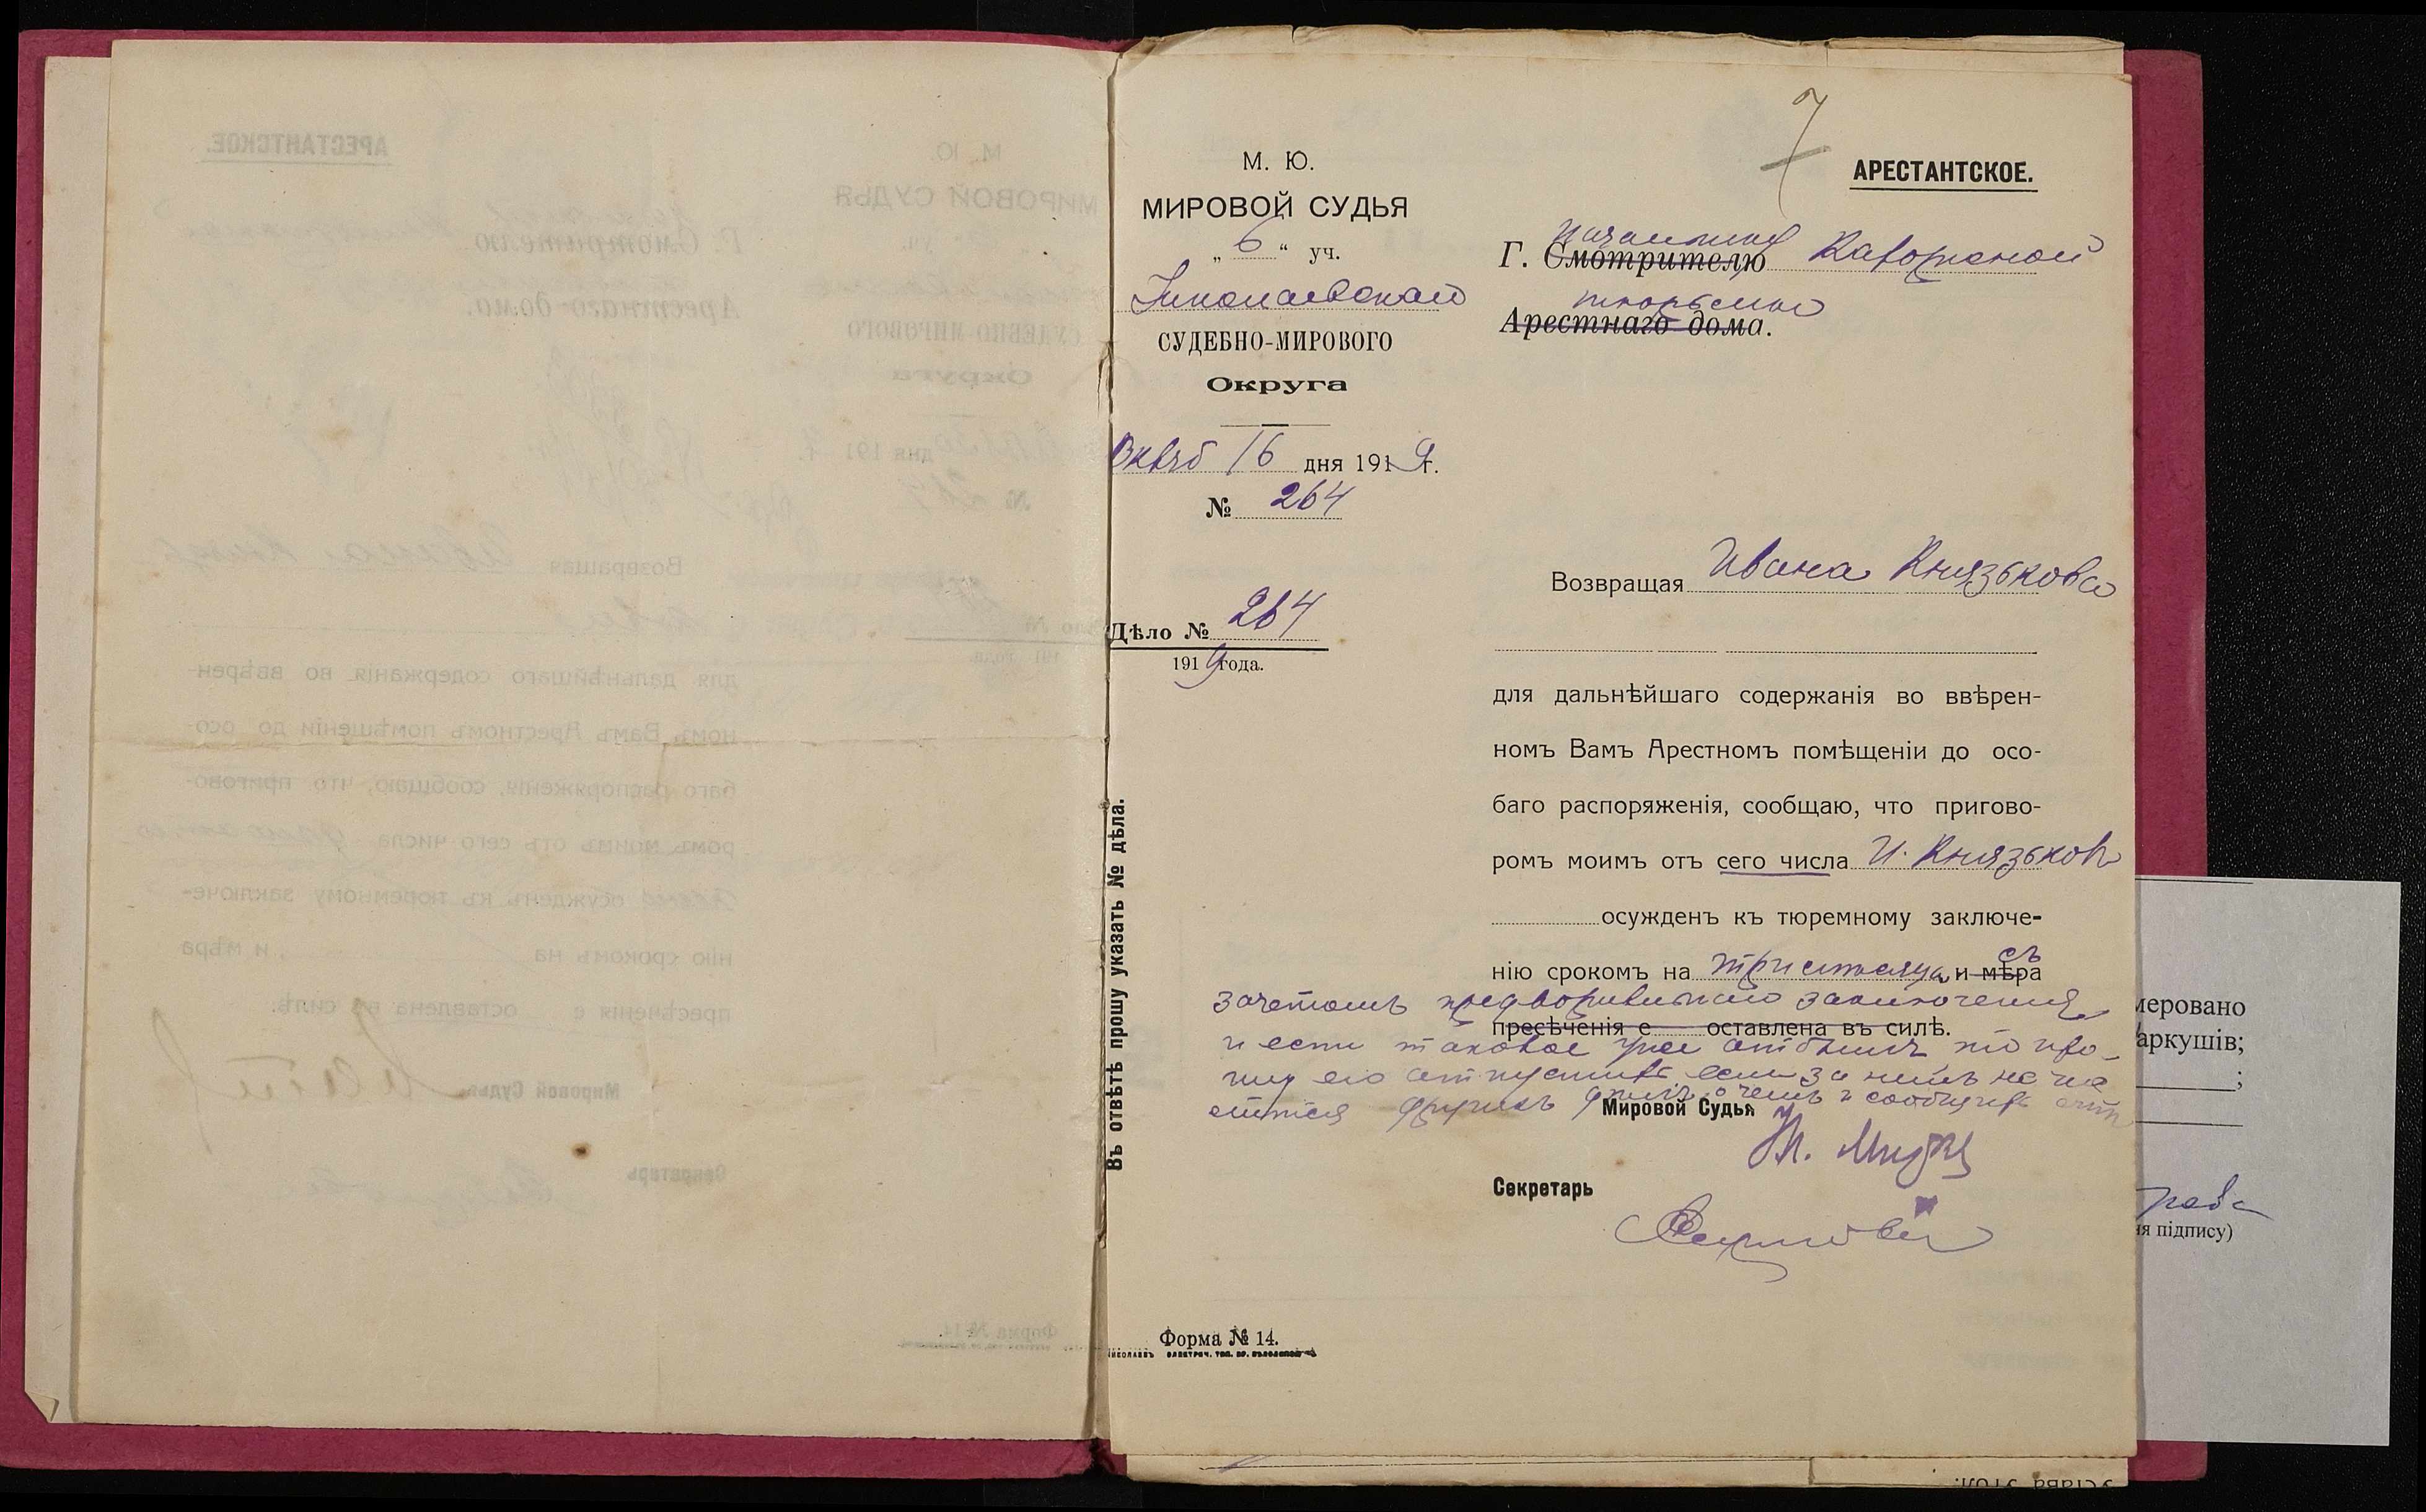 7
АРЕСТАНТСКОЕ.
М. Ю.
МИРОВОЙ СУДЬЯ
„ 6 “ уч.
Николаевскаго
СУДЕБНО-МИРОВОГО
Округа
16 дня 1919 г.
№ 264
Дѣло № 264
1919 года.
Въ отвѣтѣ прошу указать № дѣла.
Г. Смотрителю Каторжной
тюрьмы
Арестнаго дома.
Возвращая Ивана Князькова
для дальнѣйшаго содержанія во ввѣрен-
номъ Вамъ Арестномъ помѣщеніи до осо-
баго распоряженія, сообщаю, что пригово-
ромъ моимъ отъ сего числа И. Князьковъ
осужденъ къ тюремному заключе-
нію срокомъ на три мѣсяца и мѣра
съ
зачетомъ предварительнаго заключенія
пресѣченія е оставлена въ силѣ.
и если таковое уже отбылъ то про-
шу его отпустить если за нимъ не чи
слится другихъ дѣлъ, о чемъ и сообщить
Мировой Судья
Секретарь
Форма № 14.
меровано
аркушів;
;
ня підпису)